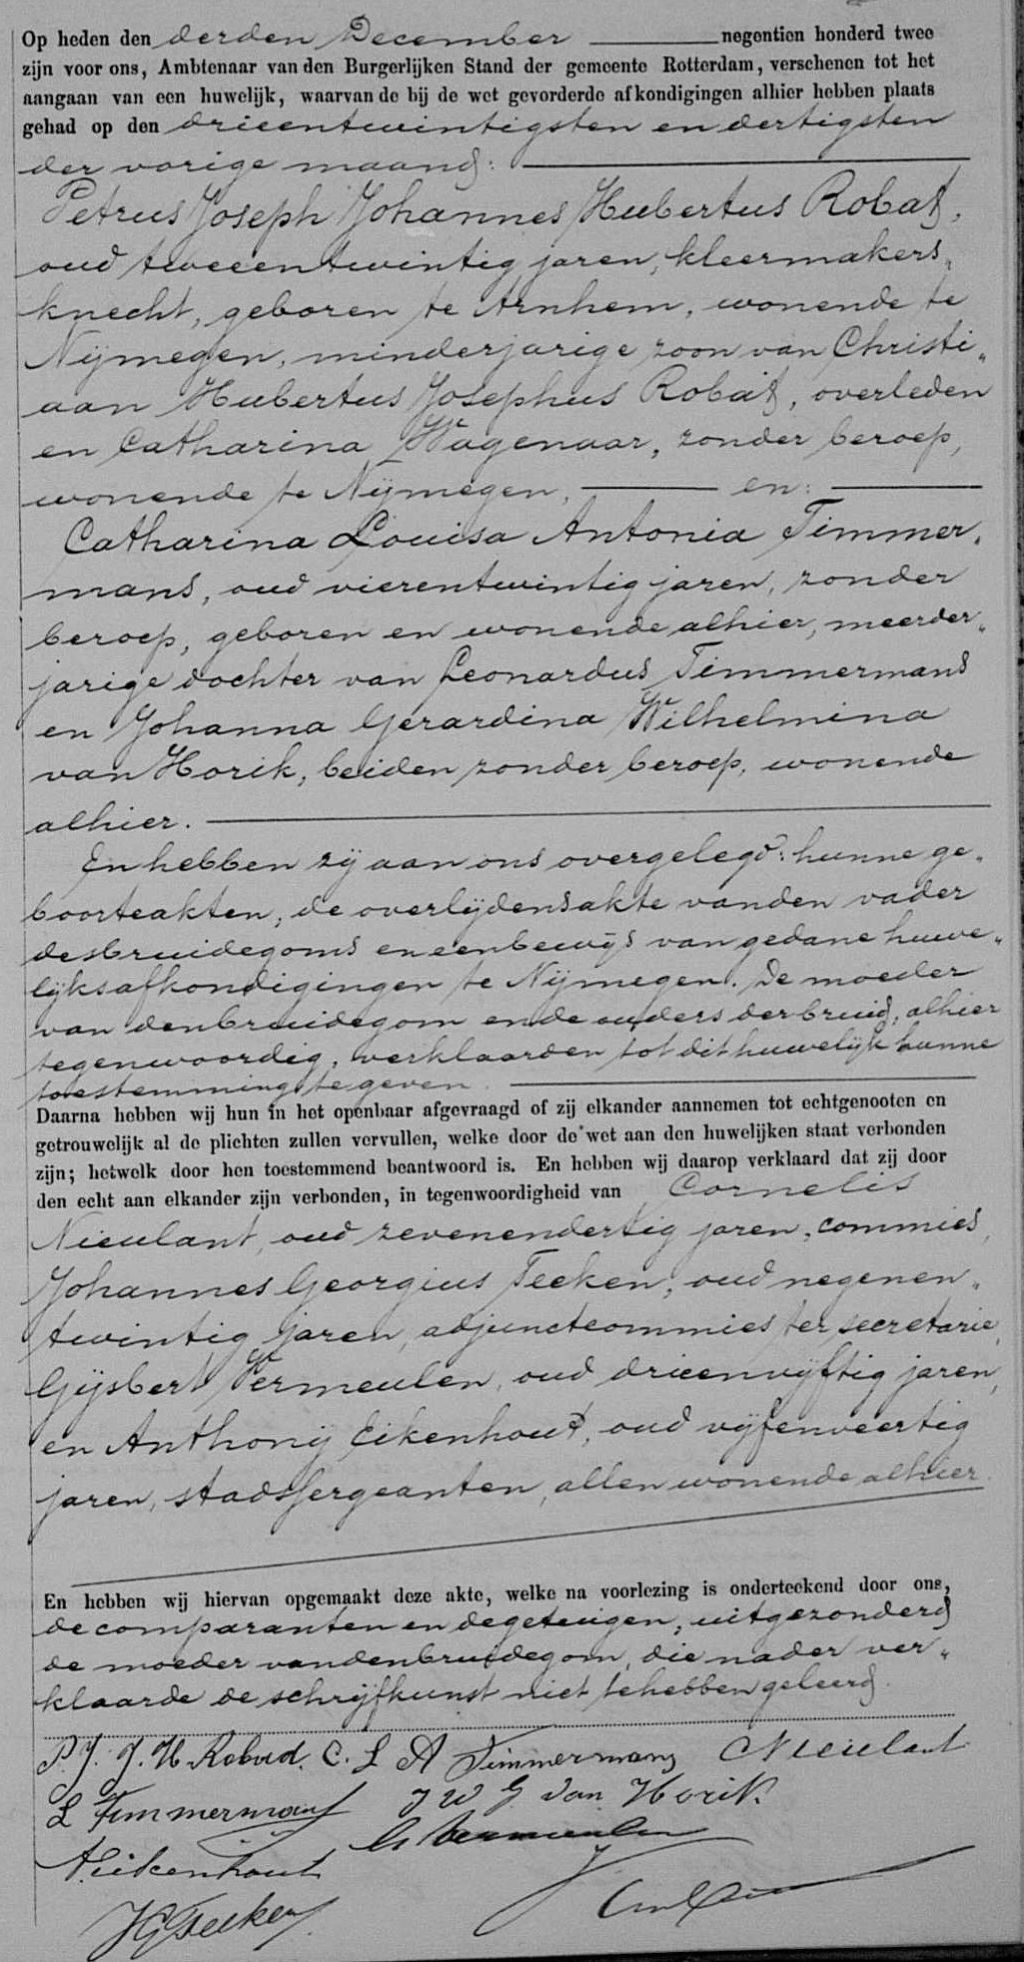 Op heden den derden December negentien honderd twee
zijn voor ons, Ambtenaar van den Burgerlijken Stand der gemeente Rotterdam, verschenen tot het
aangaan van een huwelijk, waarvan de bij de wet gevorderde afkondigingen alhier hebben plaats
gehad op den drieentwintigsten en dertigsten
der vorige maand:
Petrus Joseph Johannes Hubertus Robad,
oud tweeentwintig jaren, kleermakers„
knecht, geboren te Arnhem, wonende te
Nijmegen, minderjarige zoon van Christi„
aan Hubertus Josephus Robad, overleden
en Catharina Wagenaar, zonder beroep,
wonende te Nijmegen, en:
Catharina Louisa Antonia Timmer„
mans, oud vierentwintig jaren, zonder
beroep, geboren en wonende alhier, meerder„
jarige dochter van Leonardus Timmermans
en Johanna Gerardina Wilhelmina
van Horik, beiden zonder beroep, wonende
alhier.
En hebben zij aan ons overgelegd: hunne ge„
boorteakten, de overlijdensakte van den vader
des bruidegoms en een bewijs van gedane huwe„
lijksafkondigingen te Nijmegen. De moeder
van den bruidegom en de ouders der bruid, alhier
tegenwoordig, verklaarden tot dit huwelijk hunne
toestemming te geven.
Daarna hebben wij hun in het openbaar afgevraagd of zij elkander aannemen tot echtgenooten en
getrouwelijk al de plichten zullen vervullen, welke door de wet aan den huwelijken staat verbonden
zijn; hetwelk door hen toestemmend beantwoord is. En hebben wij daarop verklaard dat zij door
den echt aan elkander zijn verbonden, in tegenwoordigheid van Cornelis
Nieulant, oud zevenendertig jaren, commies,
Johannes Georgius Teeken, oud negenen„
twintig jaren, adjunctcommies ter secretarie,
Gijsbert Vermeulen, oud drieenvijftig jaren,
en Anthonij Eikenhout, oud vijfenveertig
jaren, stadssergeanten, allen wonende alhier.
En hebben wij hiervan opgemaakt deze akte, welke na voorlezing is onderteekend door ons,
de comparanten en de getuigen, uitgezonderd
de moeder van den bruidegom, die nader ver„
klaarde de schrijfkunst niet te hebben geleerd.
P. J. J. H Robad. C. L A Timmermans C Nieulant
L Timmermans J W G van Horik
A Eikenhout G Vermeulen
JGTeeken